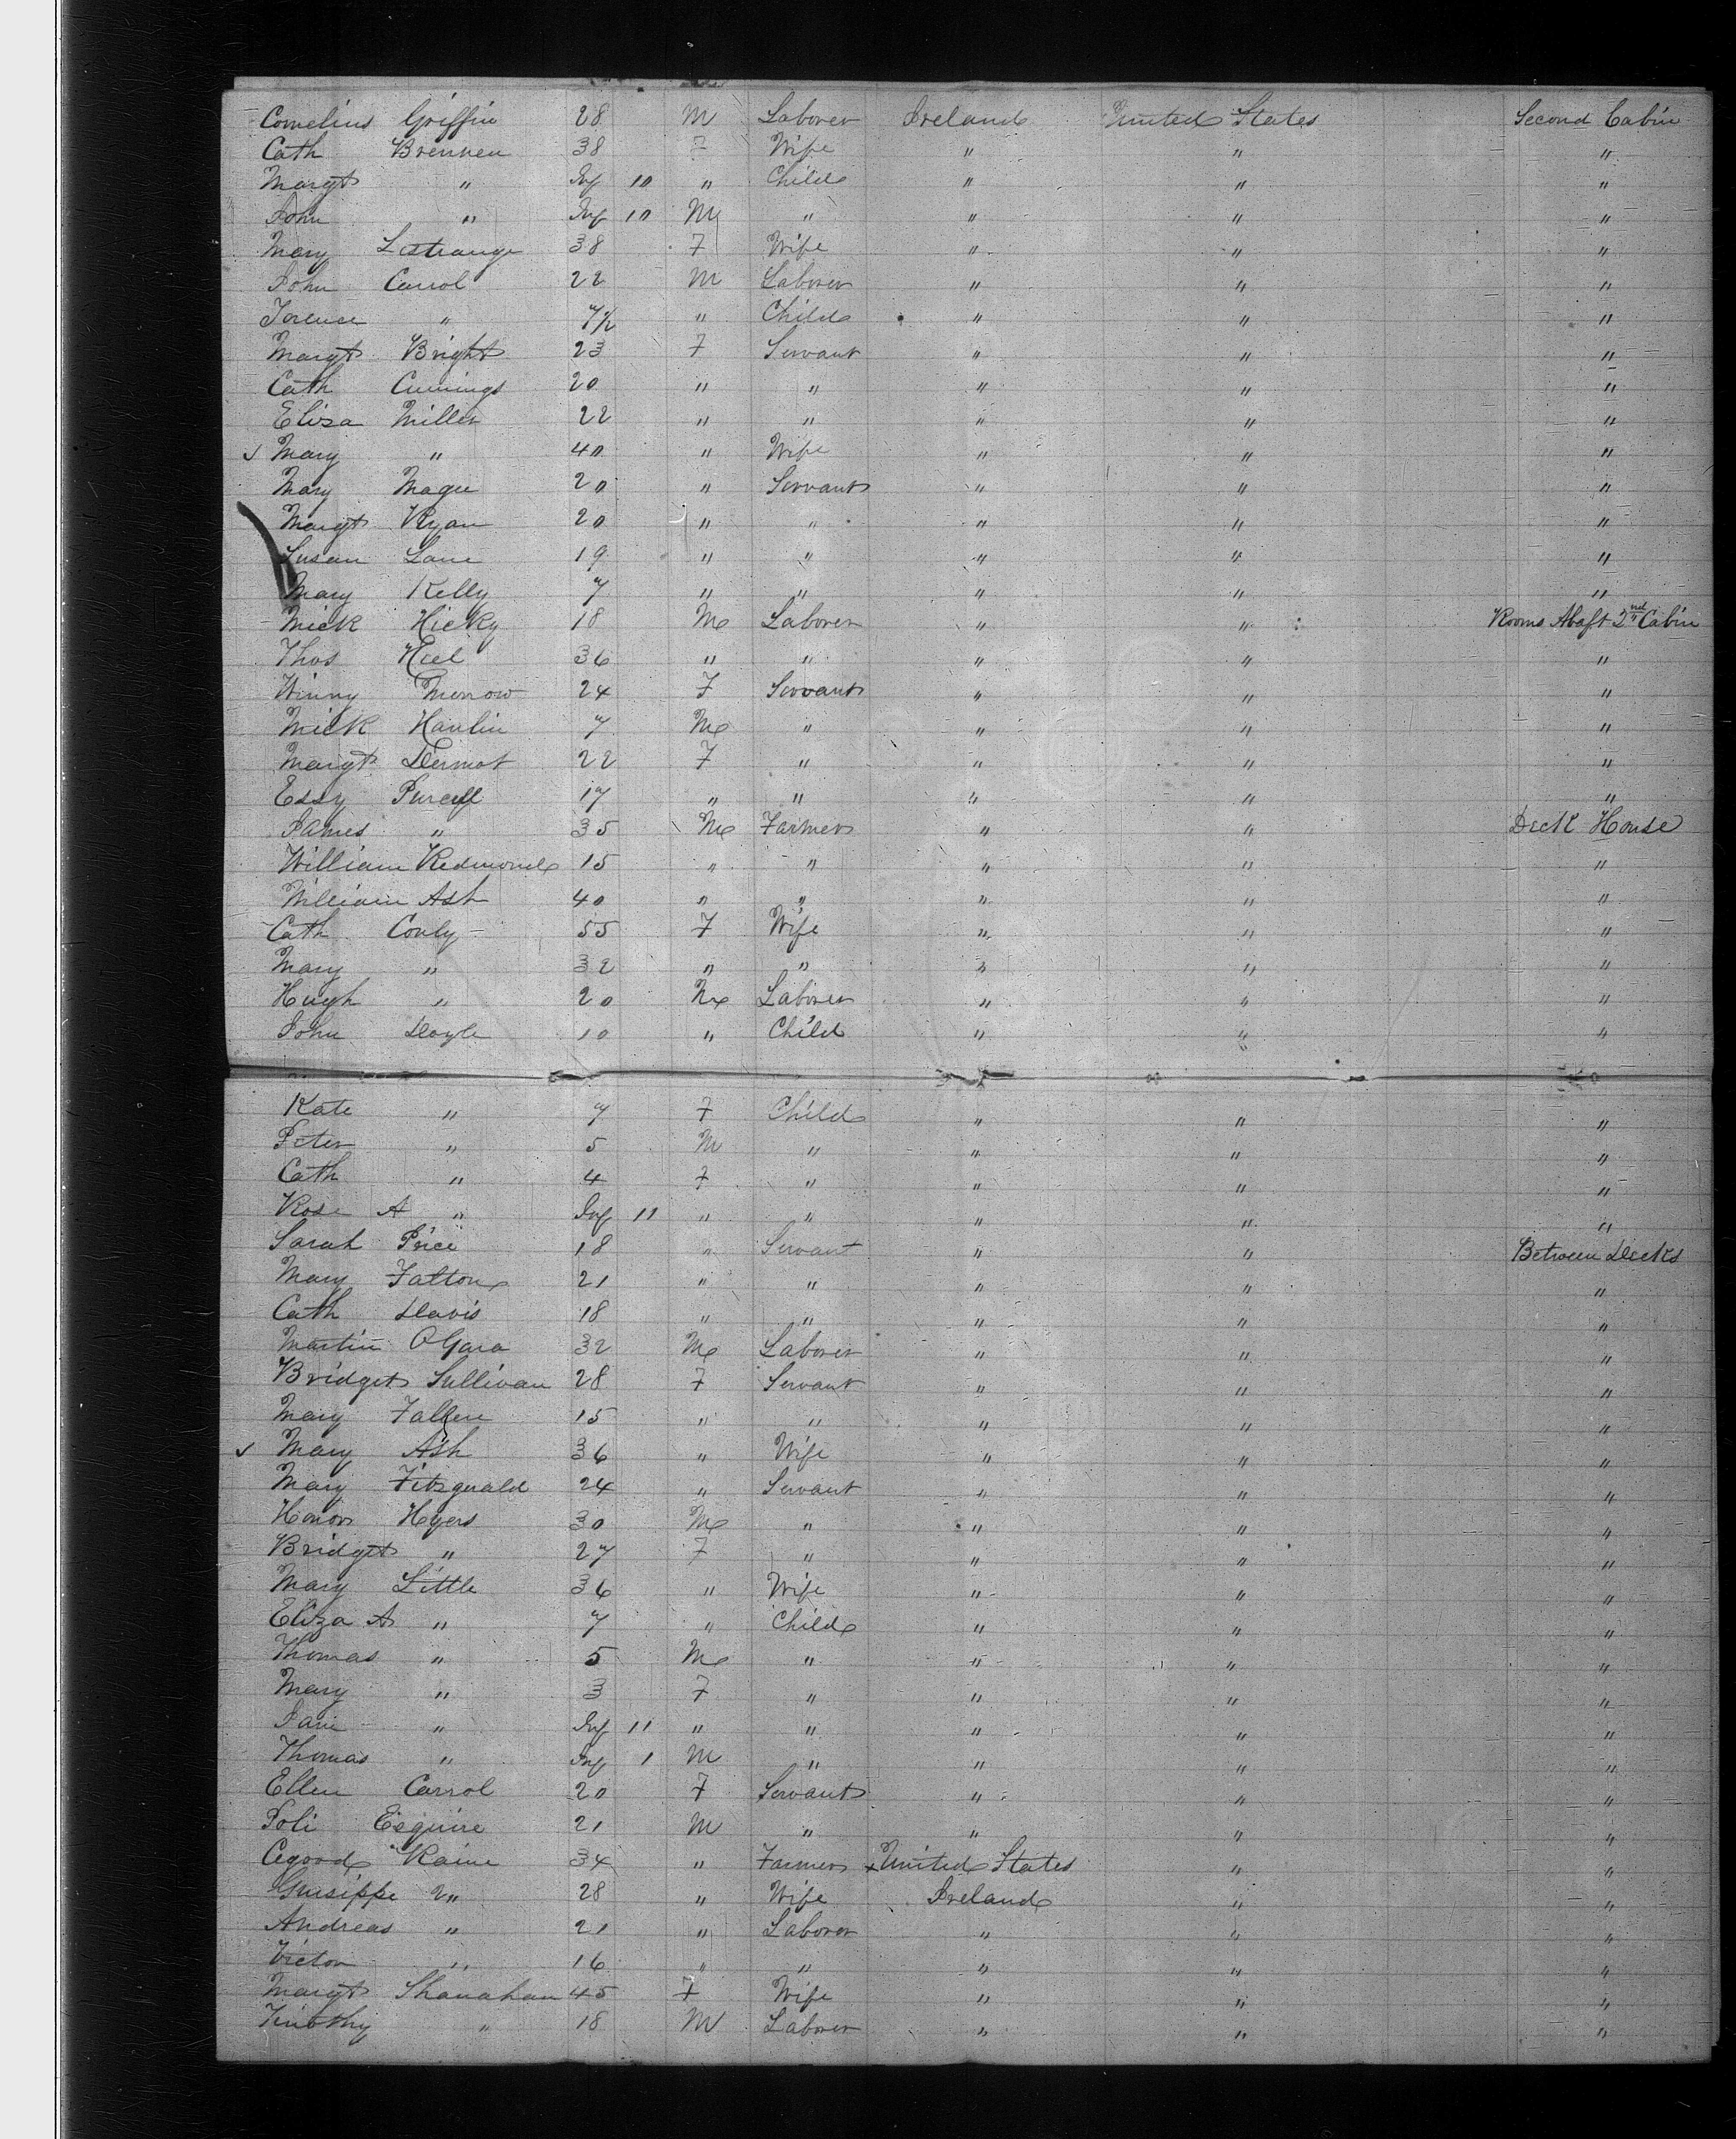 Cornelius Griffin 28 M Laborer Ireland United States Second Cabin
Cath Brennen 38 F Wife " " "
Margt " Inf 10 " Child " " "
John " Inf 10 M " " " "
Mary Lestrange 38 F Wife " " "
John Carrol 22 M Laborer " " "
Torence " 7/12 " Child " " "
Margt Bright 23 F Servant " " "
Cath Cumings 20 " " " " "
Eliza Miller 22 " " " " "
✓ Mary " 40 " Wife " " "
Mary Magee 20 " Servant " " "
Margt Ryan 20 " " " " "
Susan Lane 19 " " " " "
Mary Kelly 7 " " " " "
Mick Hicky 18 M Laborer " " Rooms Abaft 2nd Cabin
Thos Heel 36 " " " " "
Winny Morrow 24 F Servant " " "
Mick Hanlin 7 M " " " "
Margt Dermot 22 F " " " "
Essy Purcell 17 " " " " "
James " 35 M Farmer " " Deck House
William Redmond 15 " " " " "
William Ash 40 " " " " "
Cath Conly 55 F Wife " " "
Mary " 32 " " " " "
Hugh " 20 M Laborer " " "
John Doyle 10 " Child " " "
Kate " 7 F Child " " "
Peter " 5 M " " " "
Cath " 4 F " " " "
Rose A " Inf 11 " " " " "
Sarah Price 18 " Servant " " Between Decks
Mary Fallon 21 " " " " "
Cath Davis 18 " " " " "
Martin OGara 32 M Laborer " " "
Bridget Sullivan 28 F Servant " " "
Mary Fallen 15 " " " " "
✓ Mary Ash 36 " Wife " " "
Mary Fitzgerald 24 " Servant " " "
Honor Hyers 30 M " " " "
Bridget " 27 F " " " "
Mary Little 36 " Wife " " "
Eliza A " 7 " Child " " "
Thomas " 5 M " " " "
Mary " 3 F " " " "
Jane " Inf 11 " " " " "
Thomas " Inf 1 M " " " "
Ellen Carrol 20 F Servant " " "
Poli Esquire 21 M " " " "
Raine 34 " Farmer + United States " "
Guisippe 2 " 28 " Wife Ireland " "
Andreas " 21 " Laborer " " "
Victor " 16 " " " " "
Margt Shanahan 45 F Wife " " "
Timothy " 18 M Laborer " " "